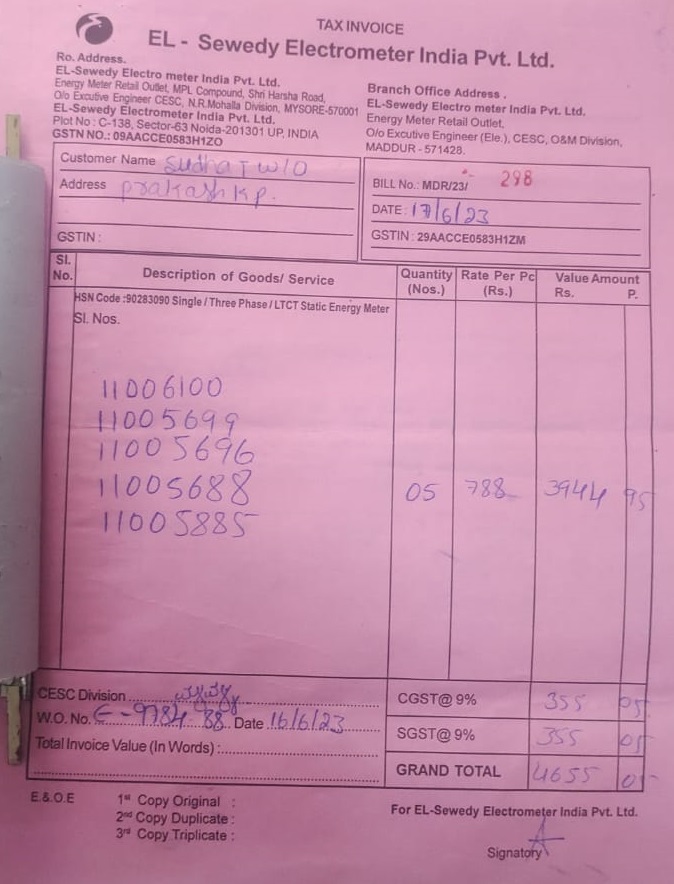 TAX INVOICE
EL - Sewedy Electrometer India Pvt. Ltd.
Ro. Address.
EL-Sewedy Electro meter India Pvt. Ltd.
Energy Meter Retail Outlet, MPL Compound, Shri Harsha Road,
O/o Excutive Engineer CESC, N.R.Mohalla Division, MYSORE-570001
EL-Sewedy Electrometer India Pvt. Ltd.
Plot No : C-138, Sector-63 Noida-201301 UP, INDIA
GSTN NO.: 09AACCE0583H1ZO
Branch Office Address .
EL-Sewedy Electro meter India Pvt. Ltd.
Energy Meter Retail Outlet,
O/o Excutive Engineer (Ele.), CESC, O&M Division,
MADDUR - 571428.
Customer Name Sudha T W/O
Address prakash k p.
GSTIN :
BILL No.: MDR/23/ 298
DATE : 17/6/23
GSTIN : 29AACCE0583H1ZM
Sl. No. Description of Goods/ Service Quantity (Nos.) Rate Per Pc (Rs.) Value Amount Rs. P.
HSN Code :90283090 Single / Three Phase / LTCT Static Energy Meter
Sl. Nos.
11006100
11005699
11005696
11005688 05 788 3944 95
11005885
CESC Division
W.O. No. E-9784-88 Date 16/6/23
Total Invoice Value (In Words) :
CGST@ 9% 355 05
SGST@ 9% 355 05
GRAND TOTAL 4655 05
E.& O.E
1st Copy Original :
2nd Copy Duplicate :
3rd Copy Triplicate :
For EL-Sewedy Electrometer India Pvt. Ltd.
Signatory